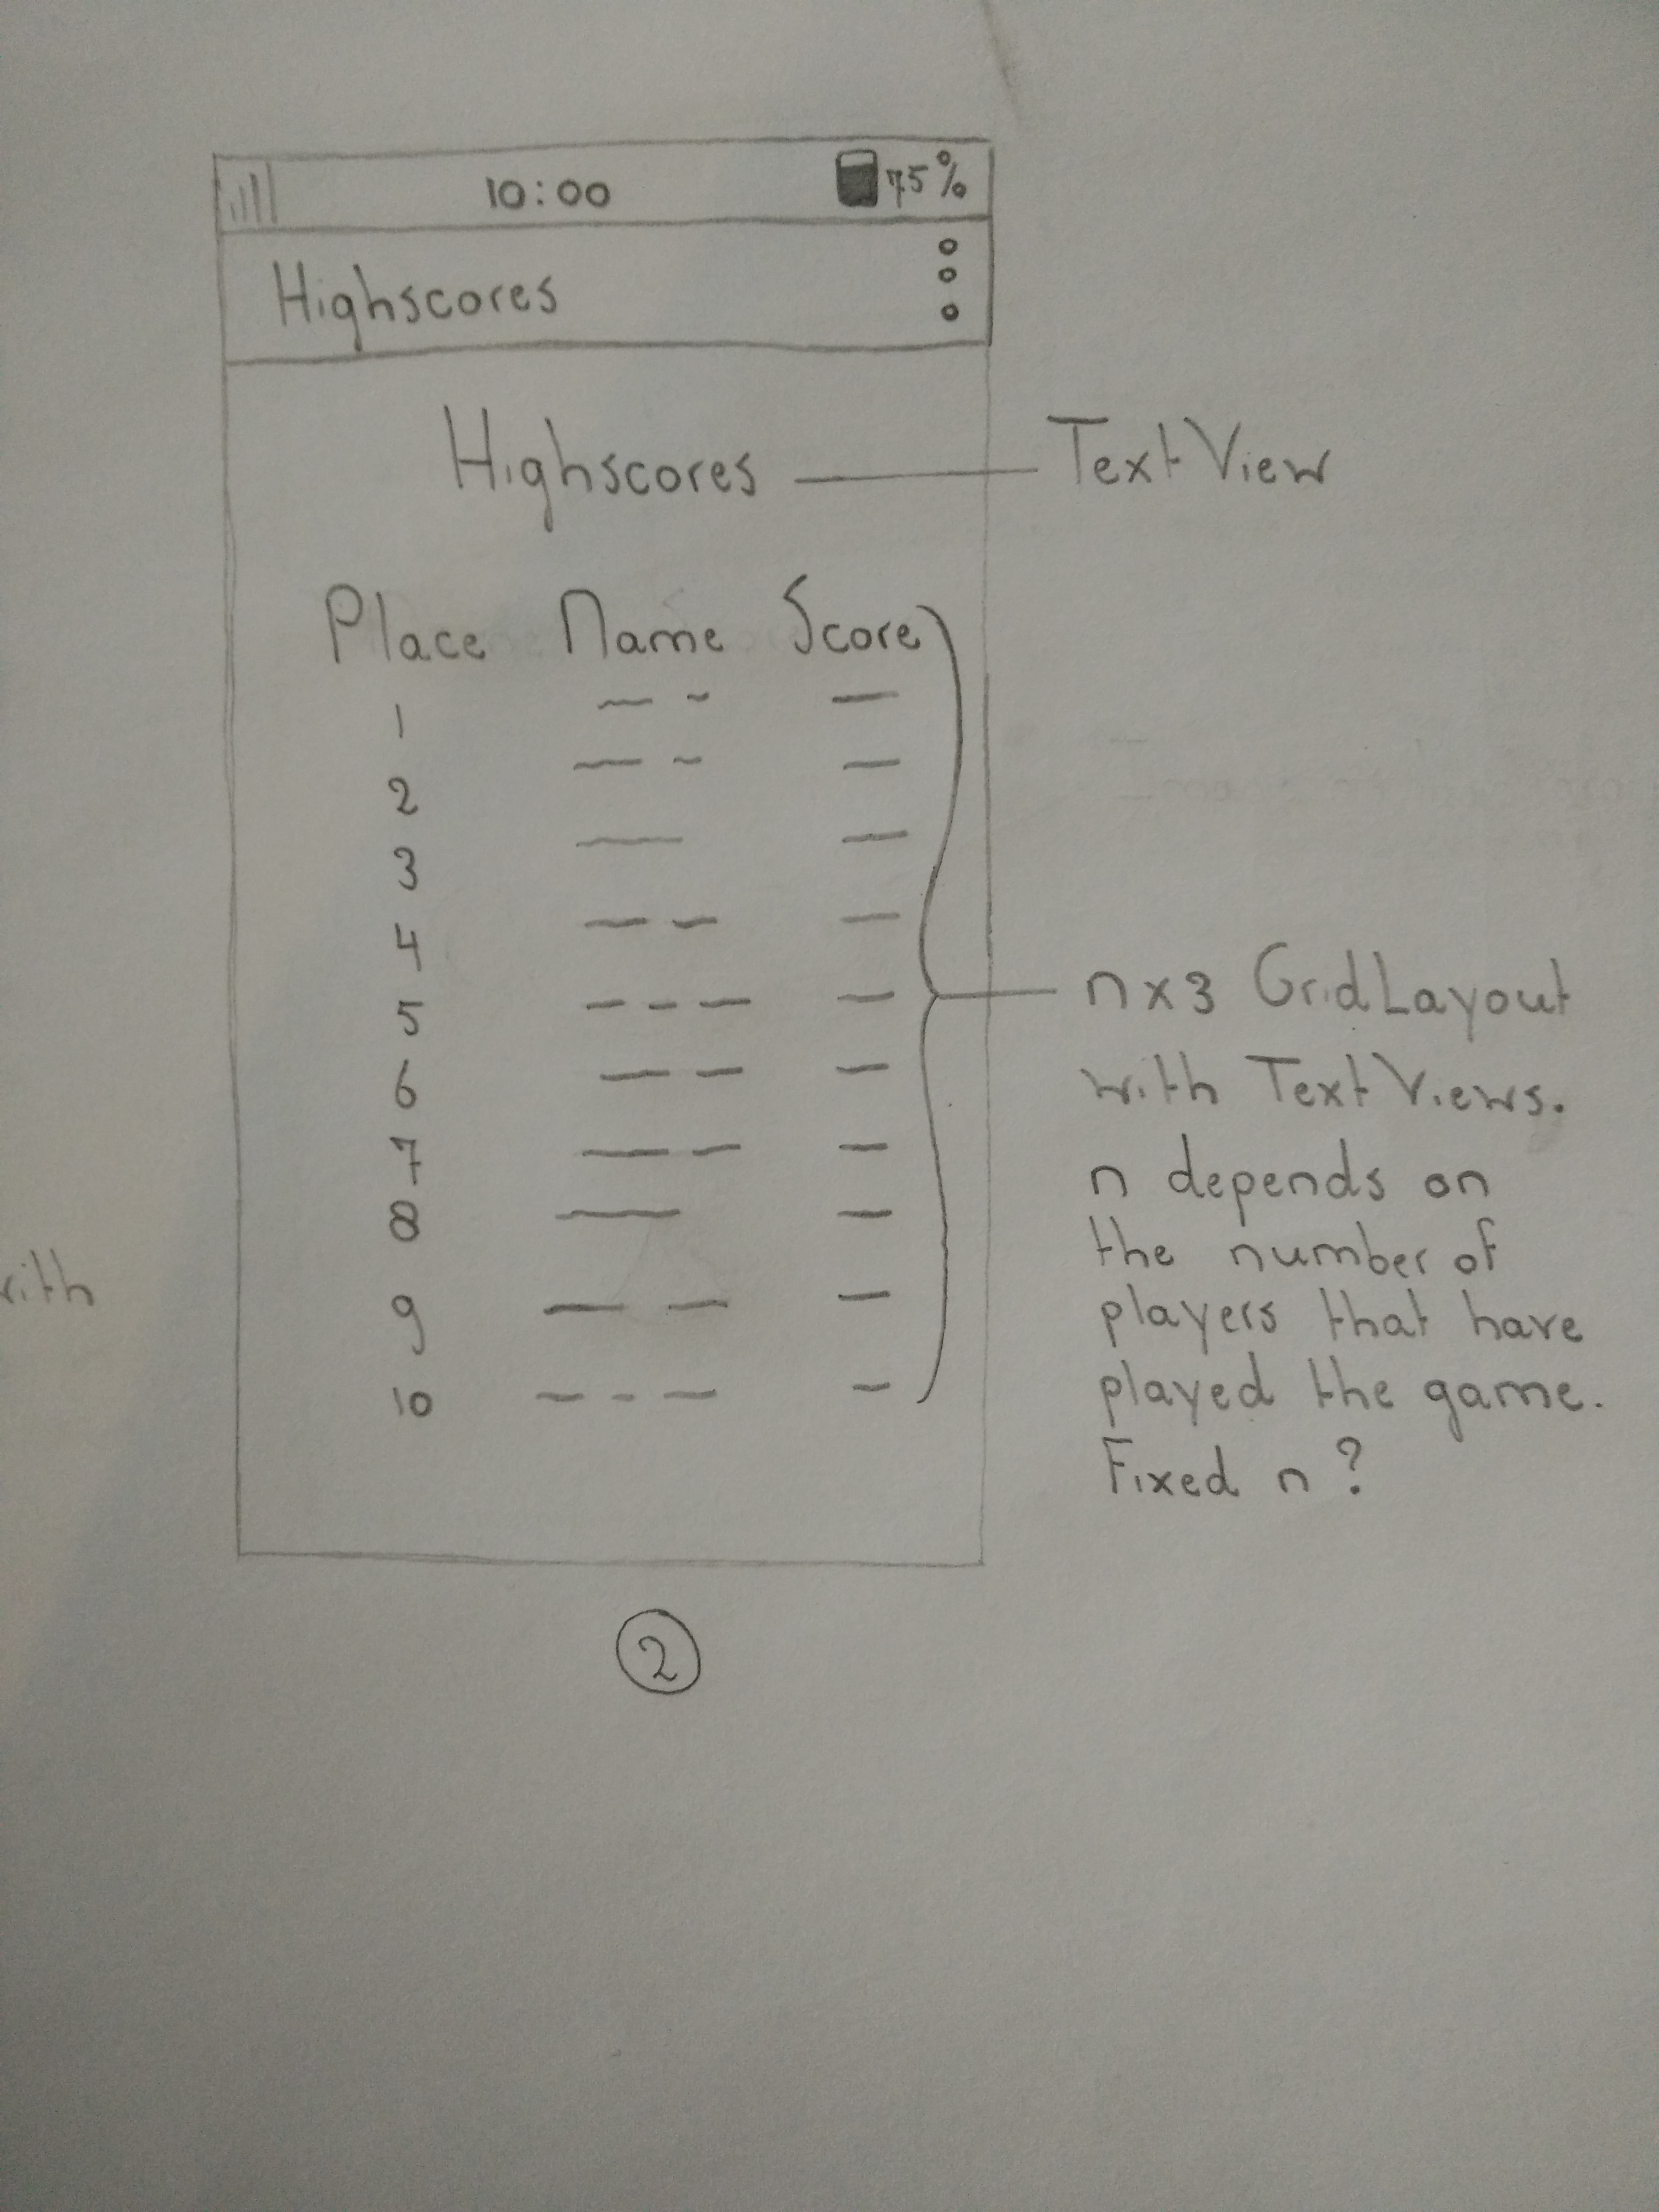 10:00 75%
Highscores
Highscores TextView
Place Name Score
1
2
3
4
5
6
7
8
9
10
nx3 GridLayout
with TextViews.
n depends on
the number of
players that have
played the game.
Fixed n?
with
2